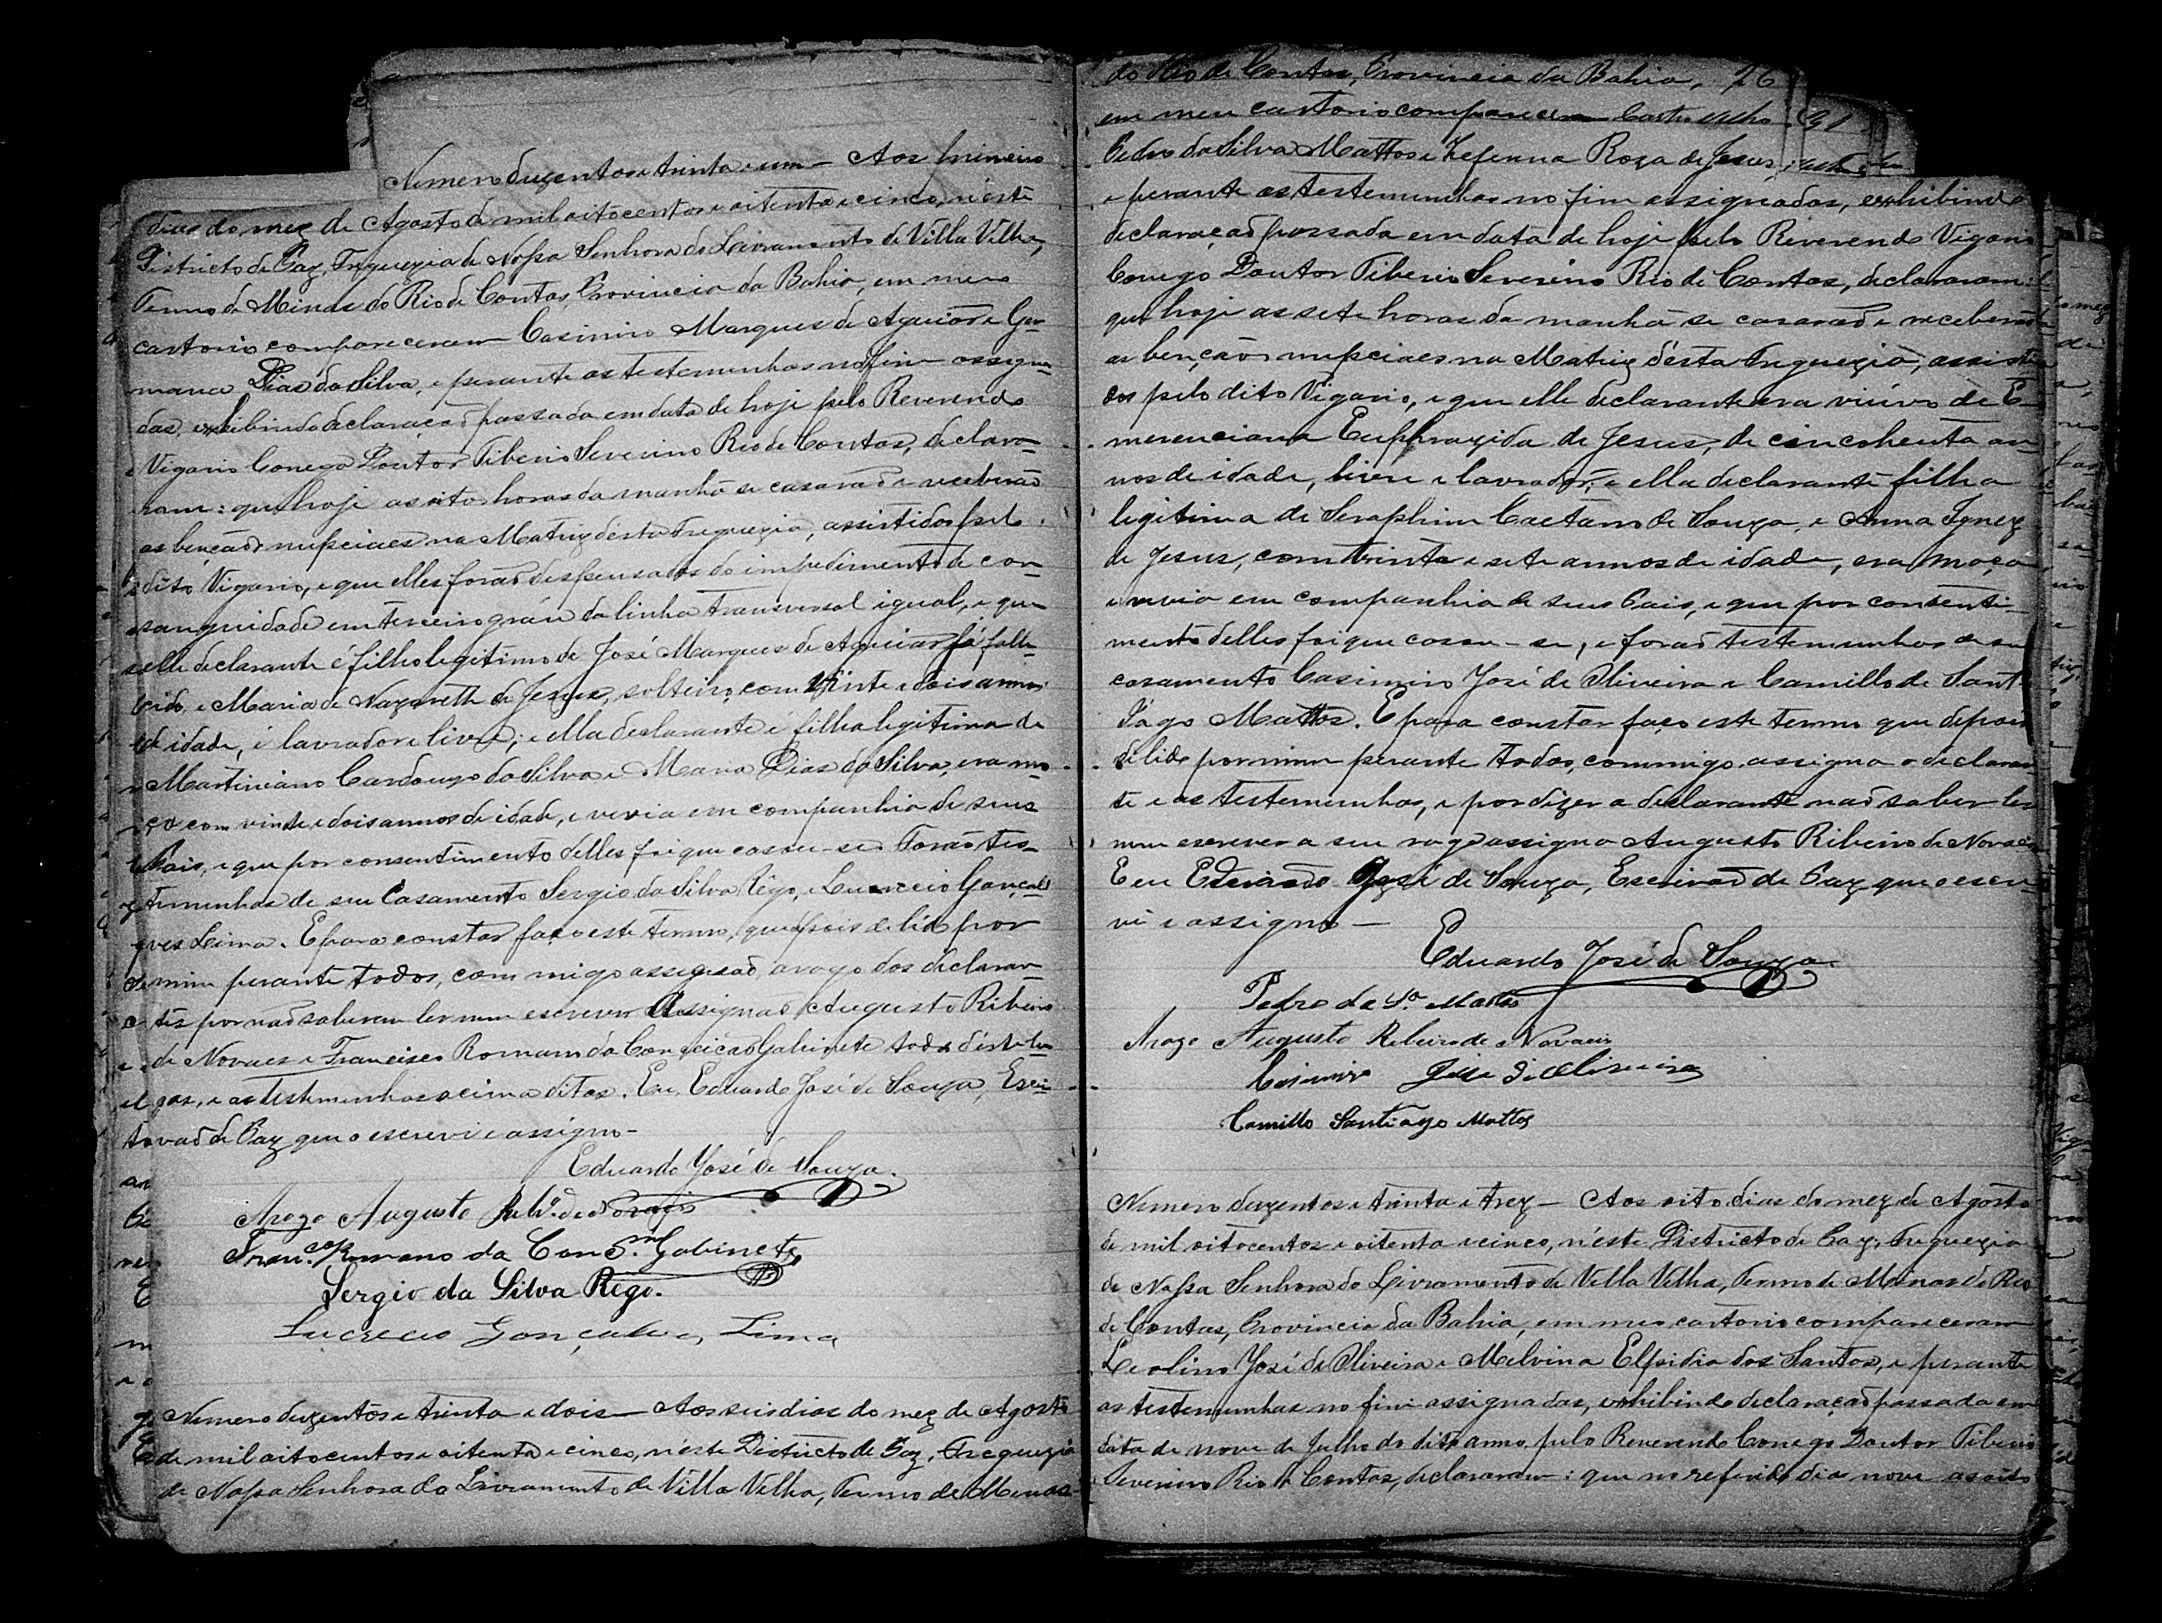 Numero duzentos e trinta e um — Aos primeiro
dias do mez de Agosto de mil oitocentos e oitenta e cinco, n'este
Districto de Paz, Freguezia de Nossa Senhora do Livramento de Villa Velha,
Termo de Minas do Rio de Contas, Provincia da Bahia, em meu
cartorio compareceram Casimiro Marques de Aguiar e Ger-
mana Dias da Silva, e perante as testemunhas no fim assigna-
das, exhibindo declaração passada em data de hoje pelo Reverendo
Vigario Conego Doutor Tiberio Severino Rio de Contas, declara-
ram: que hoje as oito horas da manhã se casarão e receberão
as bençãos nupciaes na Matriz desta Freguezia, assistidos pelo
dito Vigario, e que elles forão despensados do impedimento de con-
sanguidade em terceiro gráu da linha transversal igual, e que
elle declarante é filho legitimo de José Marques de Aguiar já falle-
cido, e Maria de Nazareth de Jesus, solteiro, com vinte e dois annos
de idade, é lavrador e livre; e ella declarante é filha legitima de
Martiniano Cardouzo da Silva e Maria Dias da Silva, era mo-
ça com vinte e dois annos de idade, e vevia em companhia de seus
Pais, e que por consentimento delles foi que casou-se. Forão tes-
temunhas de seu Casamento Sergio da Silva Rêgo, e Lucrecio Gonçal-
ves Lima. E para constar faço este termo, que depois de lido por
mim perante todos, com migo assignão, a rogo dos declaran-
tes por não saberem ler nem escrever Assignão Augusto Ribeiro
de Novaes e Francisco Romano da Conceição Gabinete todos deste lu-
gar, e as testemunhas acima ditas. Eu, Eduardo José de Souza, Escri-
vão de Paz que o escrevi e assigno —
Eduardo José de Souza.
Arogo Augusto Rib.º de Novaes
Fran.co Romano da Conc.m Gabinete
Sergio da Silva Rego.
Lucrecio Gonçalves Lima
Numero duzentos e trinta e dois — Aos seis dias do mez de Agosto
de mil oitocentos e oitenta e cinco, n'este Districto de Paz, Freguezia
de Nossa Senhora do Livramento de Villa Velha, Termo de Minas
do Rio de Contas, Provincia da Bahia, 26
em meu cartorio compareceram
Pedro da Silva Mattos e Zefenna Roza de Jesus,
e perante as testemunhas no fim assignadas, exhibindo
declaração passada em data de hoje pelo Reverendo Vigario
Conego Doutor Tiberio Severino Rio de Contas, declararam:
que hoje as sete horas da manhã se casarão e receberão
as bençãos nupciaes na Matriz desta Freguezia, assisti-
dos pelo dito Vigario, e que elle declarante era viúvo de E-
merenciana Euphrazida de Jesus, de cincohenta an-
nos de idade, livre e lavrador, e ella declarante filha
legitima de Seraphim Caetano de Souza, e Anna Ignez
de Jesus, com trinta e sete annos de idade, era moça
e vevia em companhia de seus Pais, e que por consenti-
mento delles foi que casou-se, e forão testemunhas de seu
casamento Casimiro José de Oliveira e Camillo de Sant
Iago Mattos. E para constar faço este termo que depois
de lido por mim perante todos, commigo assigna o declaran-
te e as testemunhas, e por dizer a declarante não saber ler
nem escrever a seu rogo assigna Augusto Ribeiro de Novaes
E eu Eduardo José de Souza, Escrivão de Paz que o escre-
vi e assigno —
Eduardo José de Souza.
Pedro da S.a Mattos
Arogo Augusto Ribeiro de Novaes
Casimiro José de Oliveira
Camillo Santiago Mattos
Numero duzentos e trinta e trez — Aos oito dias do mez de Agosto
de mil oitocentos e oitenta e cinco, n'este Districto de Paz, Freguezia
de Nossa Senhora do Livramento de Villa Velha, Termo de Minas do Rio
de Contas, Provincia da Bahia, em meu cartorio compareceram
Leolino José de Oliveira e Melvina Elpidia dos Santos, e perante
as testemunhas no fim assignadas, exhibindo declaração passada em
data de nove de Julho do dito anno, pelo Reverendo Conego Doutor Tiberio
Severino Rio de Contas, declararam: que no referido dia nove as oito